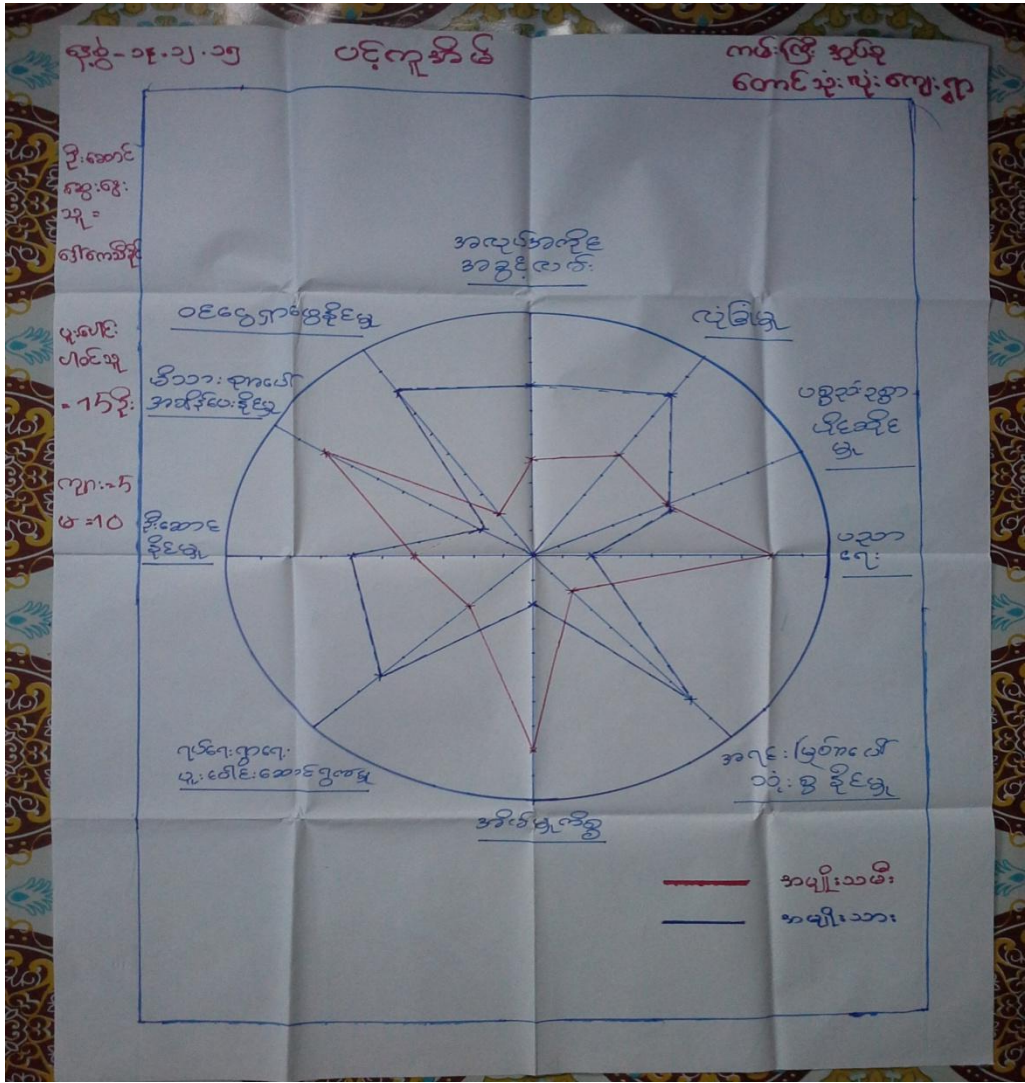 ပင့်ကူအိမ်
ကမ်းကြီး အုပ်စု
တောင်သုံးလုံးကျေးရွာ
ဦးဆောင်
ဆွေးနွေး
သူ =
ပူးပေါင်း
ပါဝင်သူ
= 15 ဦး
ကျား = 5
မ = 10
အလုပ်အကိုင်
အခွင့်အလမ်း
ဝင်ငွေရှာဖွေနိုင်မှု
လုံခြုံမှု
မိသားစုအပေါ်
အချိန်ပေးနိုင်မှု
ပစ္စည်းဥစ္စာ
ပိုင်ဆိုင်
မှု
ဦးဆောင်
နိုင်မှု
ပညာ
ရေး
ရပ်ရေးရွာရေး
ပူးပေါင်းဆောင်ရွက်မှု
အရင်းအမြစ်အပေါ်
သုံးစွဲနိုင်မှု
အိမ်မှုကိစ္စ
အမျိုးသမီး
အမျိုးသား